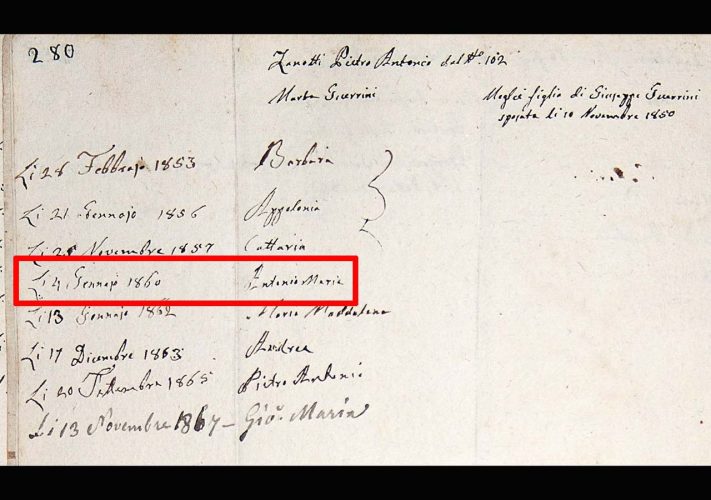 280
Zanotti Pietro Antonio dal No. 102
Marta Guerrini
Moglie figlia di Giuseppe Guerrini
sposata li 10 Novembre 1850
Li 28 Febbrajo 1853 Barbara
Li 21 Gennajo 1856 Appolonia
Li 25 Novembre 1857 Cattaria
Li 4 Gennajo 1860 Antonio Maria
Li 13 Gennajo 1862 Maria Maddalena
Li 17 Dicembre 1863 Andrea
Li 20 Settembre 1865 Pietro Antonio
Li 13 Novembre 1867 - Gio. Maria